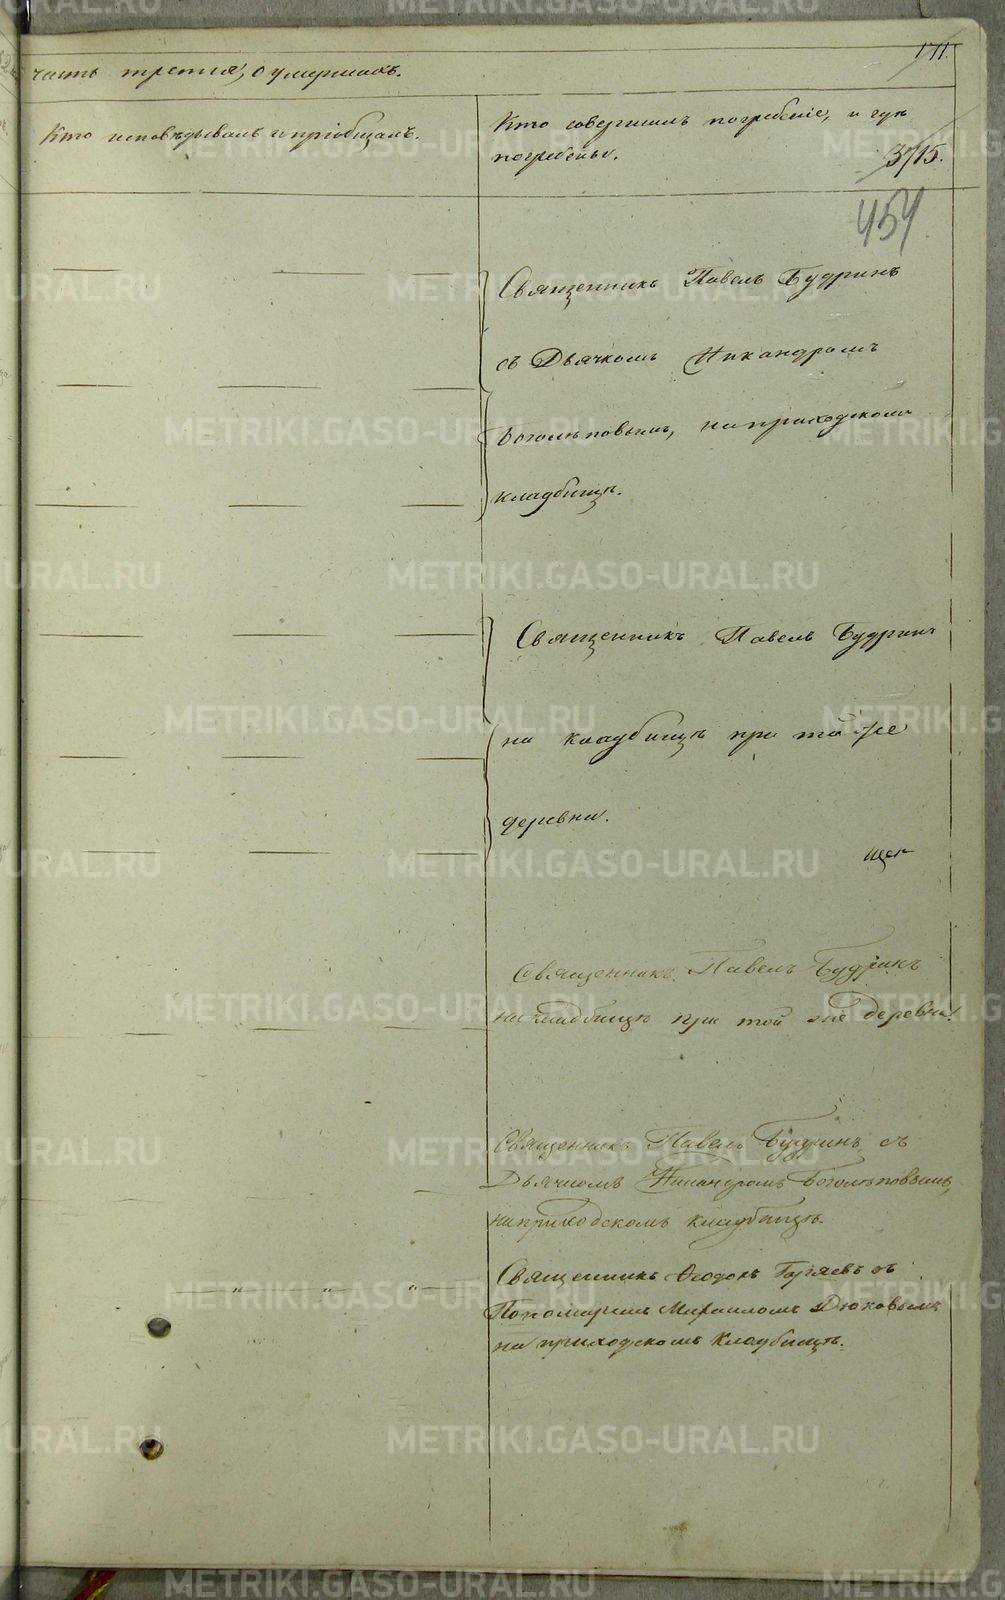 171.
часть третія, о умершихъ.
Кто исповѣдывалъ и пріобщалъ.
Кто совершилъ погребеніе, и гдѣ
погребены.
3715.
454.
Священникъ Павелъ Будринъ
съ Дьячкомъ Никандромъ
Боголѣповымъ, на приходскомъ
кладбищѣ.
Священникъ Павелъ Будринъ
на кладбищѣ при той же
деревни.
Священникъ Павелъ Будринъ
на кладбищѣ при той же деревни.
Священникъ Павелъ Будринъ съ
Дьячкомъ Никандромъ Боголѣповымъ,
на приходскомъ кладбищѣ.
Священникъ съ
Пономаремъ Михаиломъ Дюковымъ
на приходскомъ кладбищѣ.
METRIKI.GASO-URAL.RU